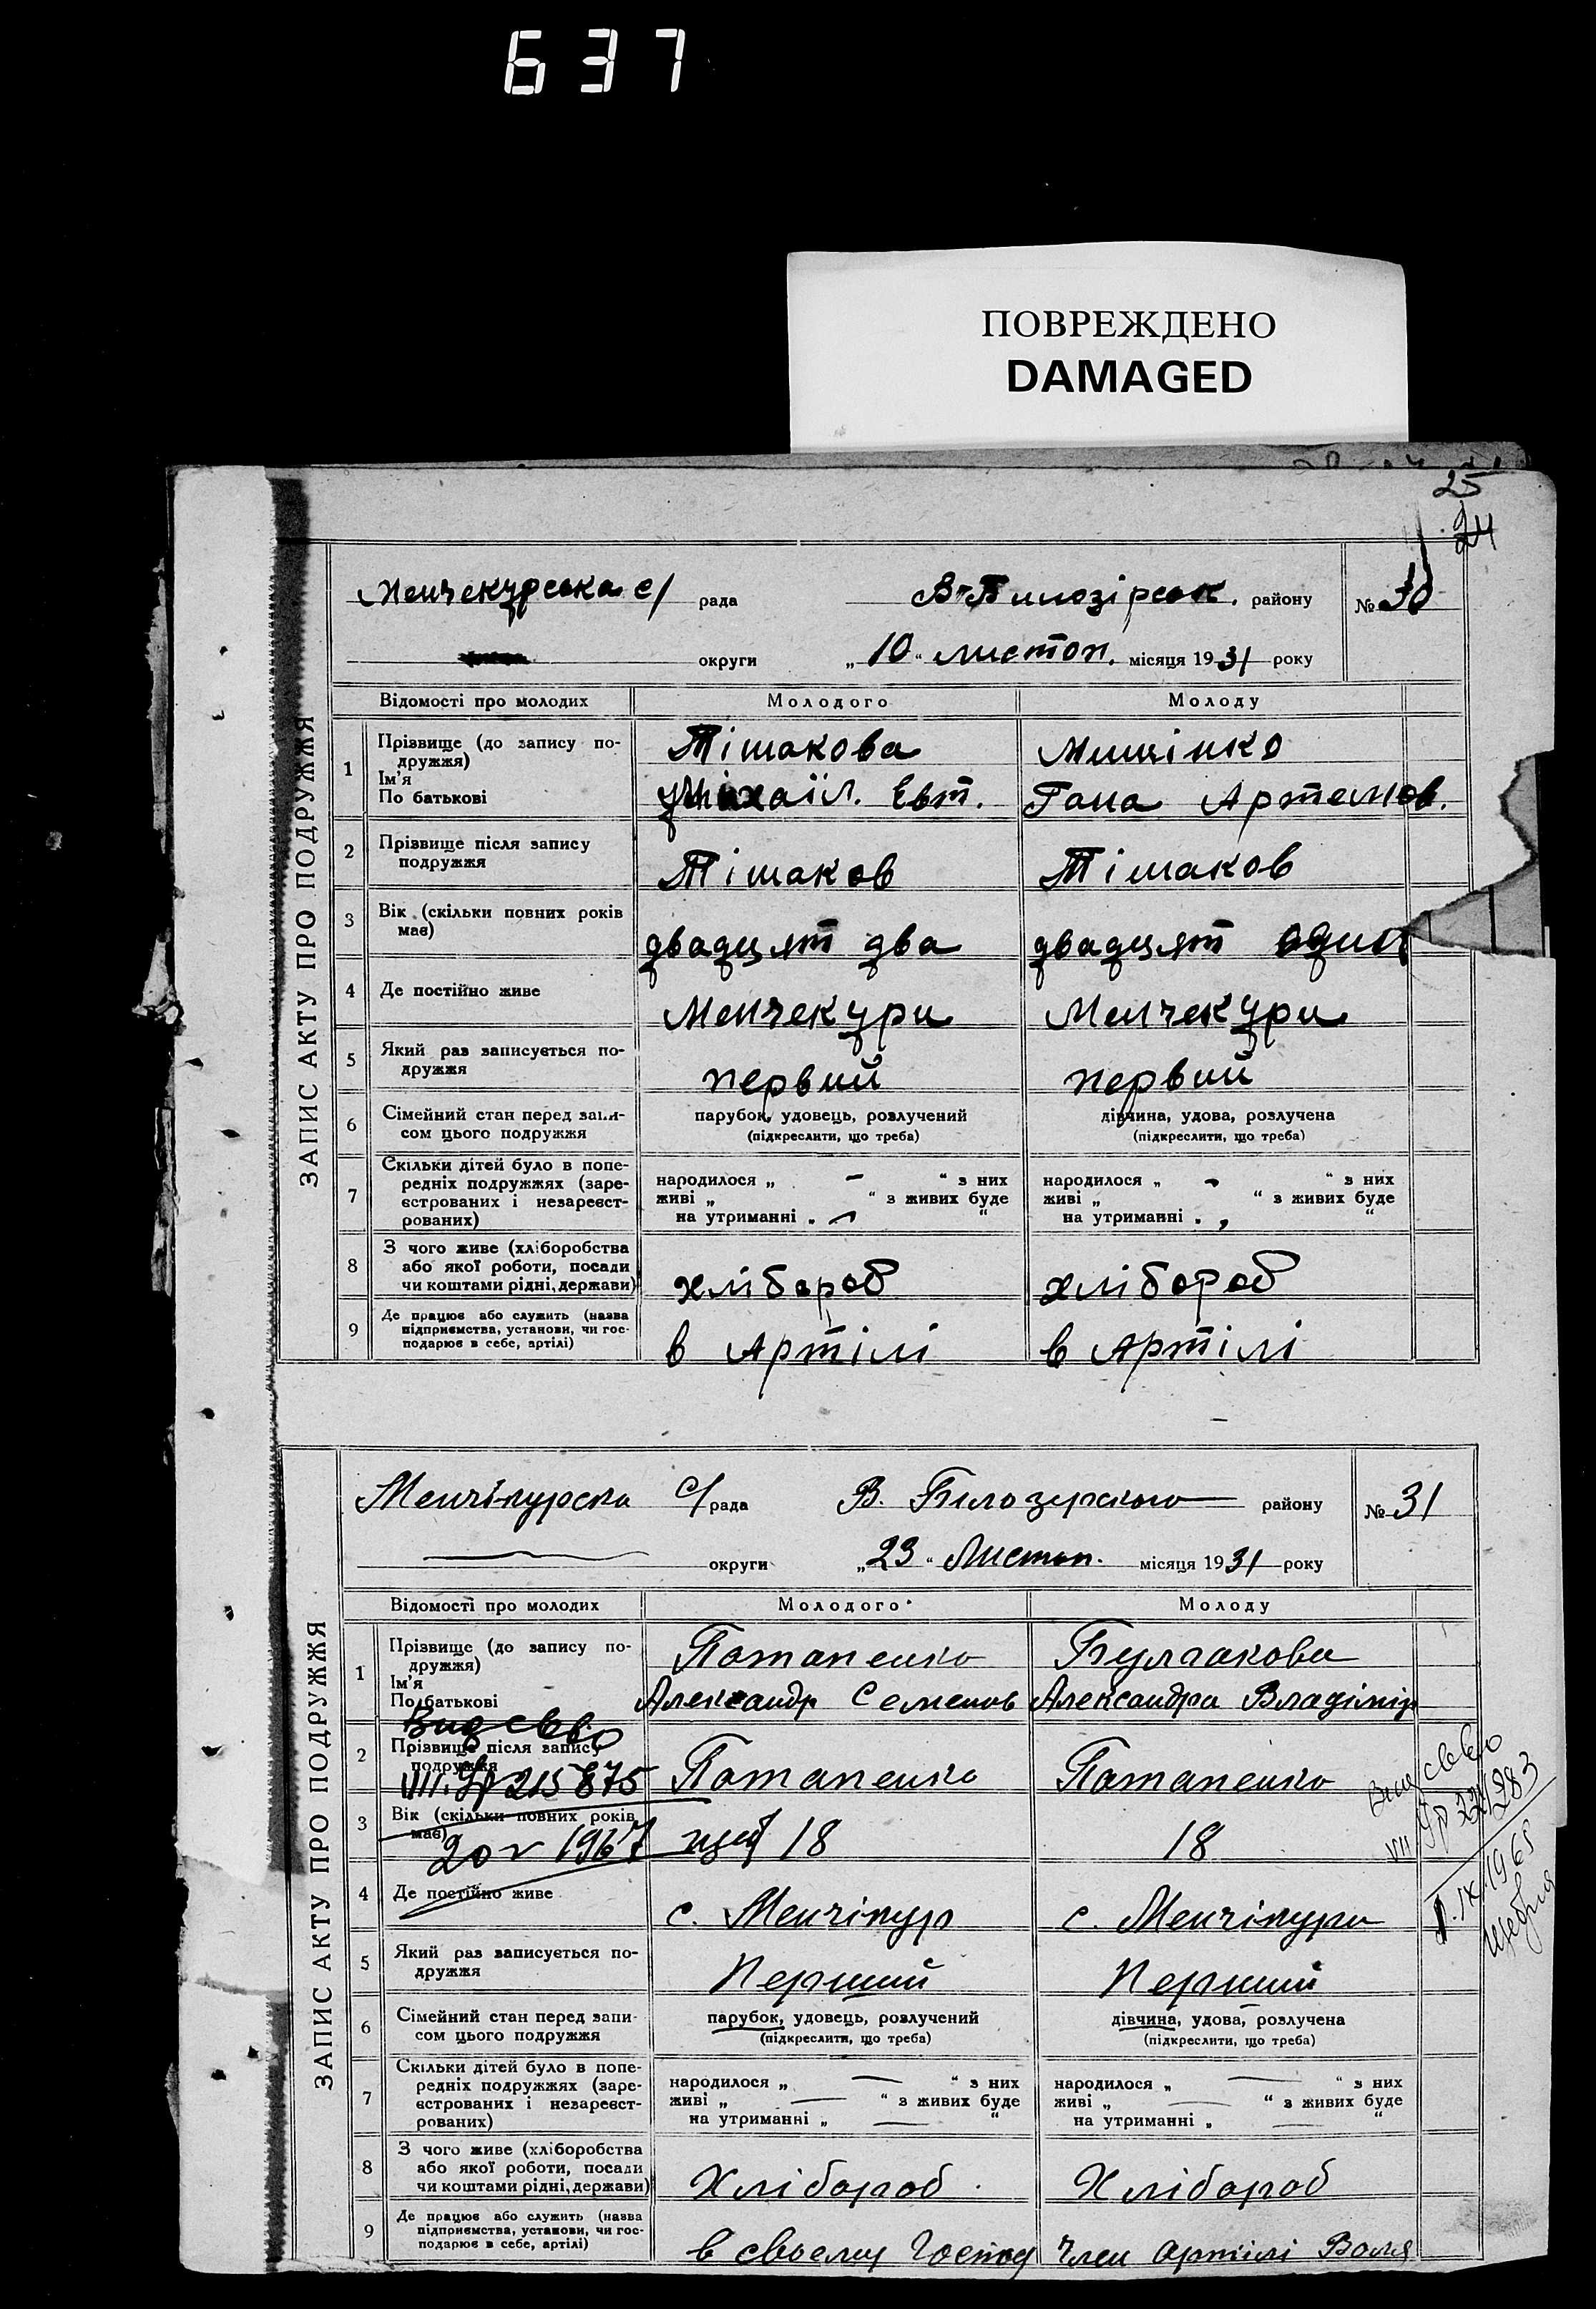 637
ПОВРЕЖДЕНО
DAMAGED
25
24
ЗАПИС АКТУ ПРО ПОДРУЖЖЯ
Менчекурська с/ рада В-Билозірськ. району № 30
округи „10“ листоп. місяця 1931 року
Відомості про молодих Молодого Молоду
1 Прізвище (до запису подружжя) Тішакова
Ім'я
По батькові Міхаїл. Євт. Гана Артемов.
2 Прізвище після запису подружжя Тішаков Тішаков
3 Вік (скільки повних років має) двадцят два двадцят один
4 Де постійно живе Менчекури Менчекури
5 Який раз записується подружжя первий первий
6 Сімейний стан перед записом цього подружжя парубок, удовець, розлучений дівчина, удова, розлучена
(підкреслити, що треба) (підкреслити, що треба)
7 Скільки дітей було в попередніх подружжях (зареєстрованих і незареєстрованих) народилося „ – “ з них народилося „ - “ з них
живі „ “ з живих буде живі „ “ з живих буде
на утриманні „ – “ на утриманні „ “
8 З чого живе (хліборобства або якої роботи, посади чи коштами рідні, держави) хлібороб хлібороб
9 Де працює або служить (назва підприємства, установи, чи господарює в себе, артілі) в Артілі в Артілі
ЗАПИС АКТУ ПРО ПОДРУЖЖЯ
Менчікурська с/ рада В. Білозерського району № 31
округи „23“ Листоп. місяця 1931 року
Відомості про молодих Молодого Молоду
1 Прізвище (до запису подружжя) Потапенко Булгакова
Ім'я
По батькові Александр Семенов Александра Владімір
Выд св-во
2 Прізвище після запису подружжя Потапенко Потапенко
VIII-УР 215875
3 Вік (скільки повних років має) 18 18
1967
4 Де постійно живе с. Менчікур с. Менчікури
5 Який раз записується подружжя Перший Перший
6 Сімейний стан перед записом цього подружжя парубок, удовець, розлучений дівчина, удова, розлучена
(підкреслити, що треба) (підкреслити, що треба)
7 Скільки дітей було в попередніх подружжях (зареєстрованих і незареєстрованих) народилося „ — “ з них народилося „ — “ з них
живі „ — “ з живих буде живі „ — “ з живих буде
на утриманні „ — “ на утриманні „ — “
8 З чого живе (хліборобства або якої роботи, посади чи коштами рідні, держави) Хлібороб Хлібороб
9 Де працює або служить (назва підприємства, установи, чи господарює в себе, артілі) в своєму Господ Член Артілі Воля
Выд св-во
VII УР